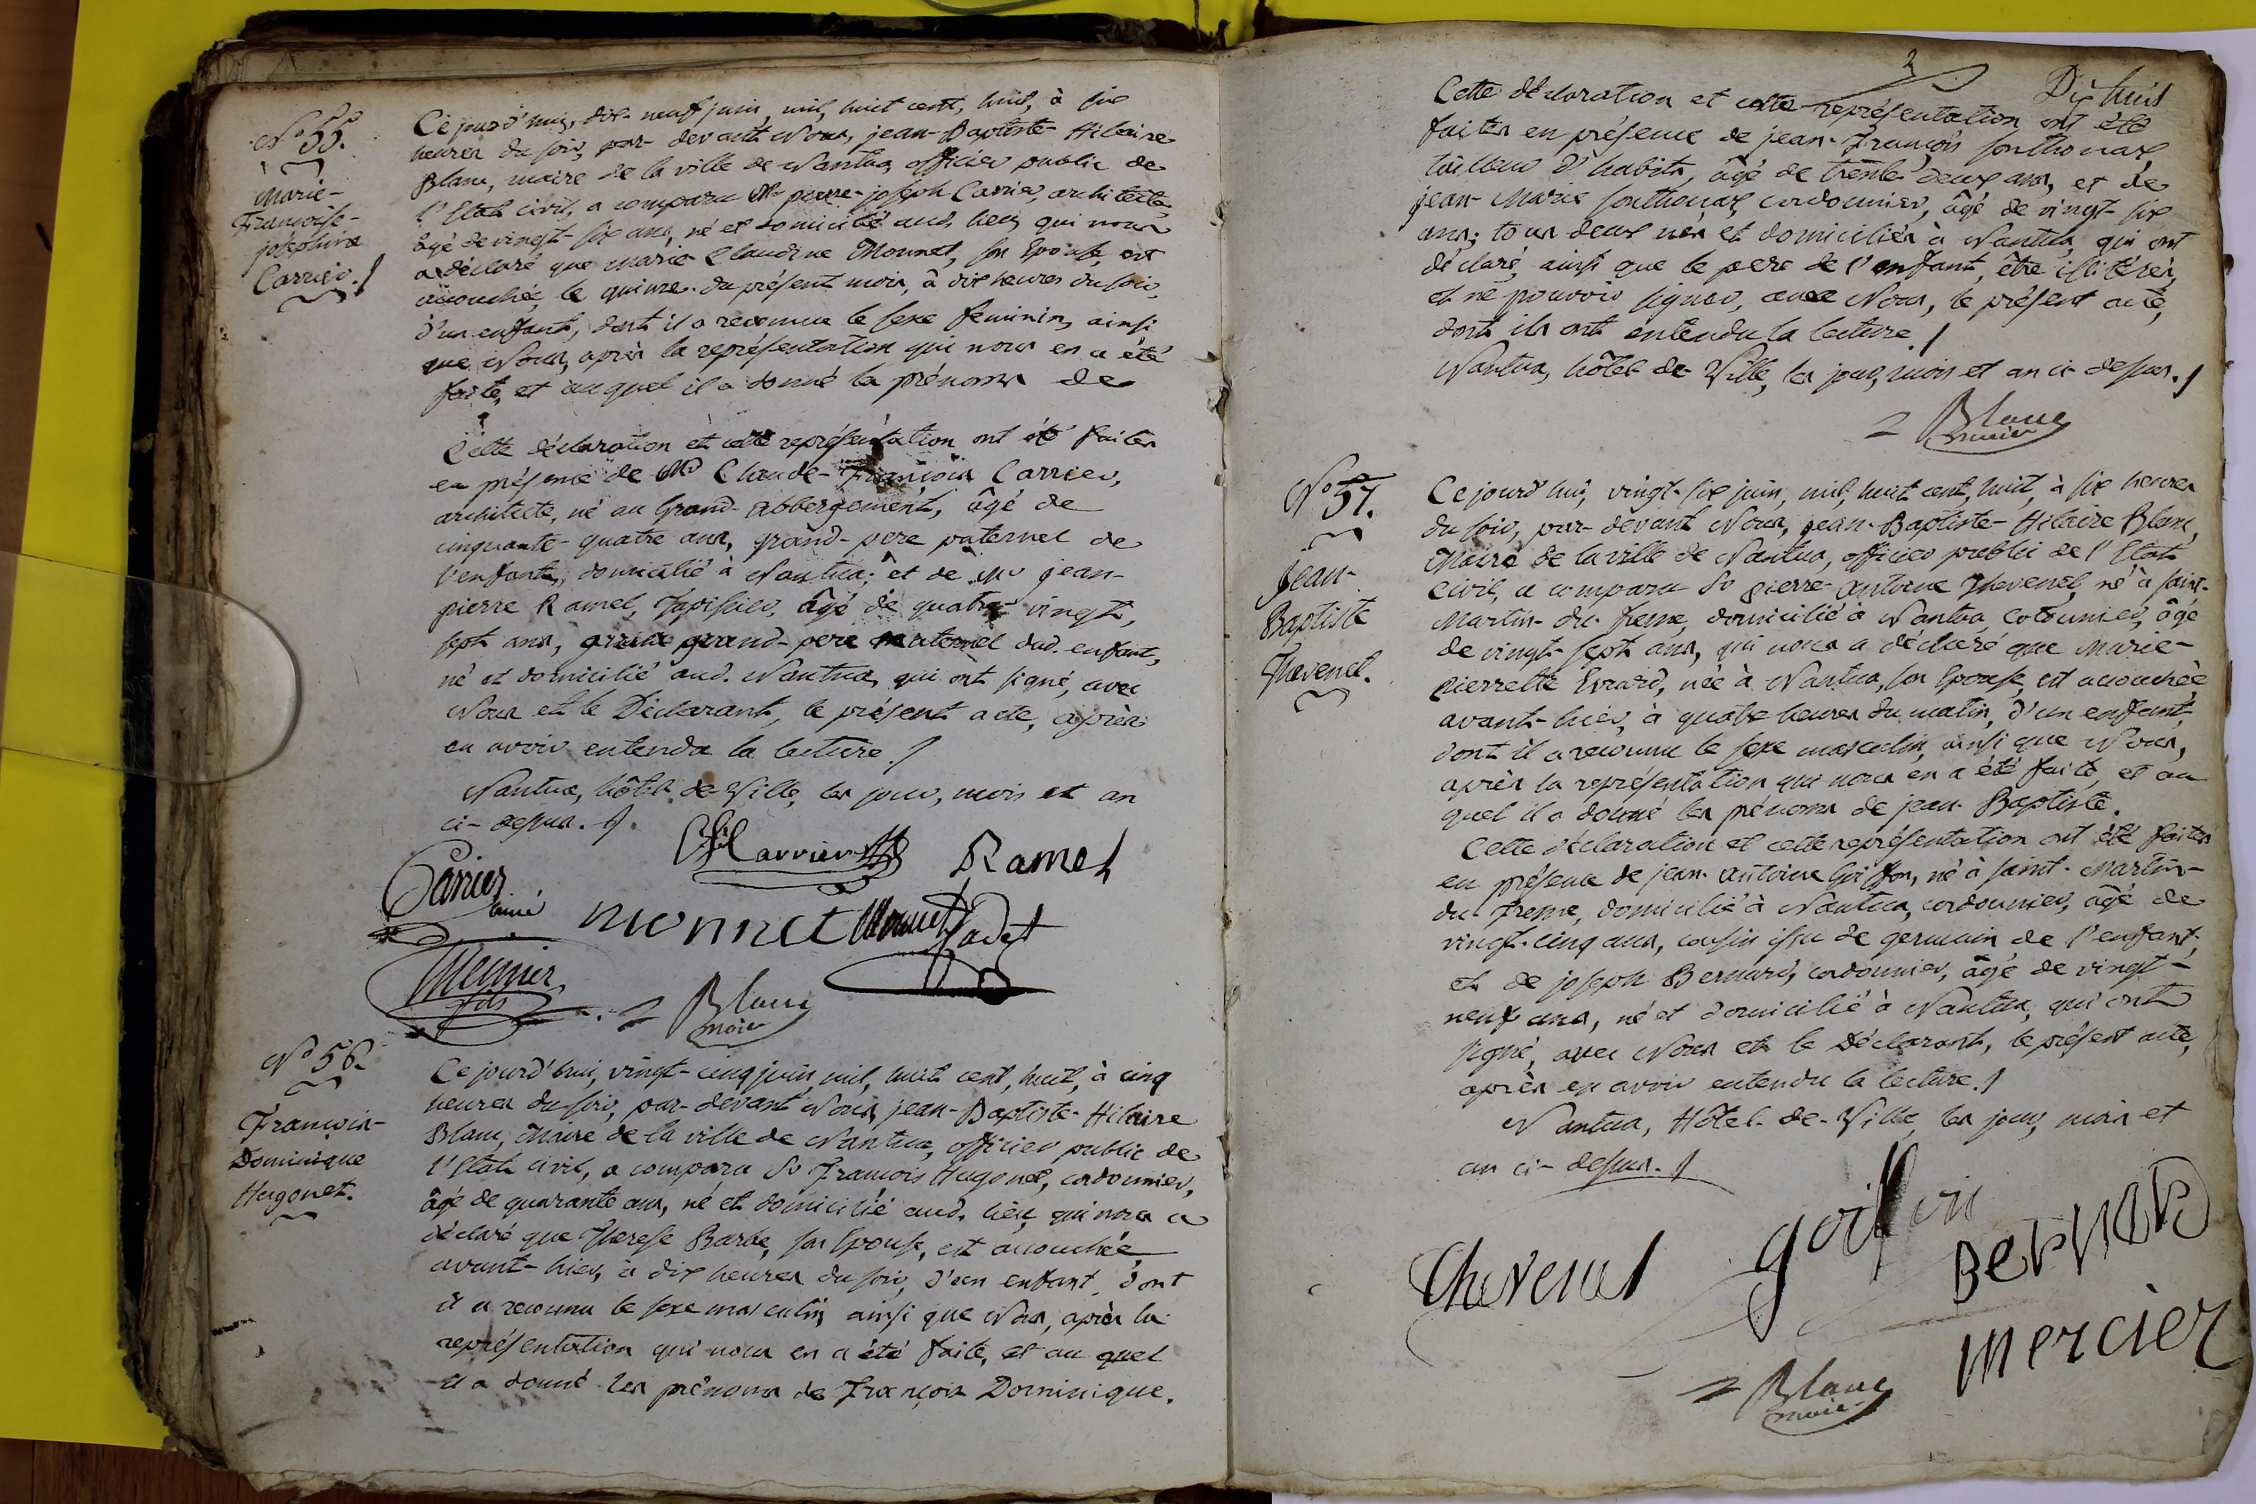 No 55.
Marie-
Françoise-
joséphine
Carrier. /
Ce jourd'hui, dix-neuf juin, mil, huit cent, huit, à six
heures du soir, par-devant Nous, jean-Baptiste-Hilaire
Blanc, maire de la ville de Nantua, officier public de
l'Etat civil, a comparu Mr pierre-joseph Carrier, architecte,
âgé de vingt-six ans, né et domicilié aud. lieu, qui nous
a déclaré que marie Claudine Monnet, son Epouse, est
accouchée, le quinze du présent mois, à dix heures du soir,
d'un enfant, dont il a reconnu le sexe féminin, ainsi
que Nous, après la représentation qui nous en a été
faite, et auquel il a donné les prénoms de
Cette déclaration et cette représentation ont été faites
en présence de Mr Claude-François Carrier,
architecte, né au Grand-abbergement, âgé de
cinquante-quatre ans, grand-pere paternel de
l'enfant, domicilié à Nantua; et de Mr jean-
pierre Ramel, Tapissier, âgé de quatre-vingt,
sept ans, grand-pere maternel dud. enfant,
né et domicilié aud. Nantua, qui ont signé, avec
Nous et le Déclarant, le présent acte, après
en avoir entendu la lecture. /
Nantua, hôtel de Ville, les jour, mois et an
ci-dessus. /.
Carrier Ramel
Carrier
ainé
monnet Monnet Cadet
Mercier
fils
Blanc
maire
No 56.
François-
Dominique
Hugonet.
Ce jourd'hui, vingt-cinq juin mil, huit cent, huit, à cinq
heures du soir, par-devant Nous, jean-Baptiste-Hilaire
Blanc, Maire de la ville de Nantua, officier public de
l'Etat civil, a comparu Sr François Hugonet, cordonnier,
âgé de quarante ans, né et domicilié aud. lieu, qui nous a
déclaré que Therese Barbe, son Epouse, est accouchée
avant-hier, à dix heures du soir, d'un enfant, dont
il a reconnu le sexe masculin, ainsi que Nous, après la
représentation qui nous en a été faite, et au quel
il a donné les prénoms de François Dominique.
Dix huit
Cette déclaration et cette représentation ont été
faites en présence de jean-François Sonthonax
tailleur d'habits, âgé de trente deux ans, et de
jean-Marie Sonthonax, cordonnier, âgé de vingt-six
ans; tous deux nés et domiciliés à Nantua, qui ont
déclaré, ainsi que le pere de l'enfant, être illitérés,
et ne pouvoir signer, avec Nous, le présent acte,
dont ils ont entendu la lecture. /
Nantua, hôtel de Ville, les jour, mois et an ci-dessus. /
Blanc
maire
No 57.
Jean-
Baptiste
Thevenet.
Ce jourd'hui, vingt-six juin, mil, huit cent, huit, à six heures
du soir, par-devant Nous, jean-Baptiste-Hilaire Blanc,
Maire de la ville de Nantua, officier public de l'Etat
civil, a comparu Sr pierre-antoine Thevenet, né à saint-
Martin-du-fresne, domicilié à Nantua, âgé
de vingt-sept ans, qui nous a déclaré que Marie-
pierrette Evrard, née à Nantua, son Epouse, est accouchée
avant-hier, à quatre heures du matin, d'un enfant,
dont il a reconnu le sexe masculin, ainsi que Nous,
après la représentation qui nous en a été faite, et au
quel il a donné les prénoms de jean-Baptiste.
Cette déclaration et cette représentation ont été faites
en présence de jean-antoine Goiffon, né à saint-Martin-
du fresne, domicilié à Nantua, cordonnier, âgé de
vingt-cinq ans, cousin issu de germain de l'enfant,
et de joseph Bernard, cordonnier, âgé de vingt-
neuf ans, né et domicilié à Nantua, qui ont
signé, avec Nous et le Déclarant, le présent acte,
après en avoir entendu la lecture. /
Nantua, Hôtel-de-Ville, les jour, mois et
an ci-dessus. /
goiffon
Thevenet
BerNard
Mercier
Blanc
maire